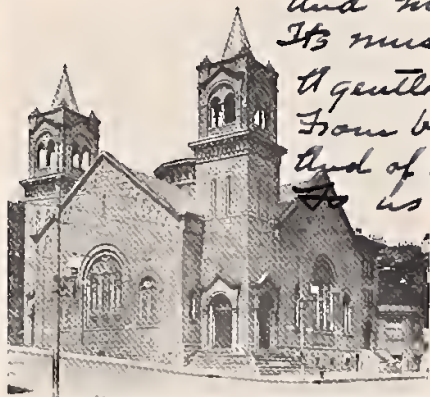 and
Its
A gentle
From
And of
To us